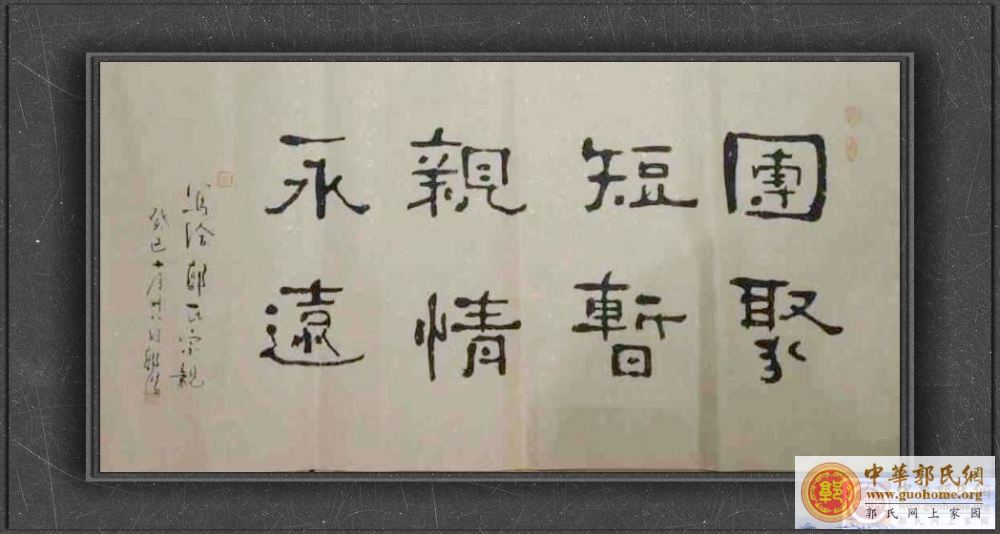 團聚
短暫
親情
永遠
寫給郭氏宗親
癸巳十月廿六日郭
中華郭氏網
www.guohome.org
郭氏网上家园